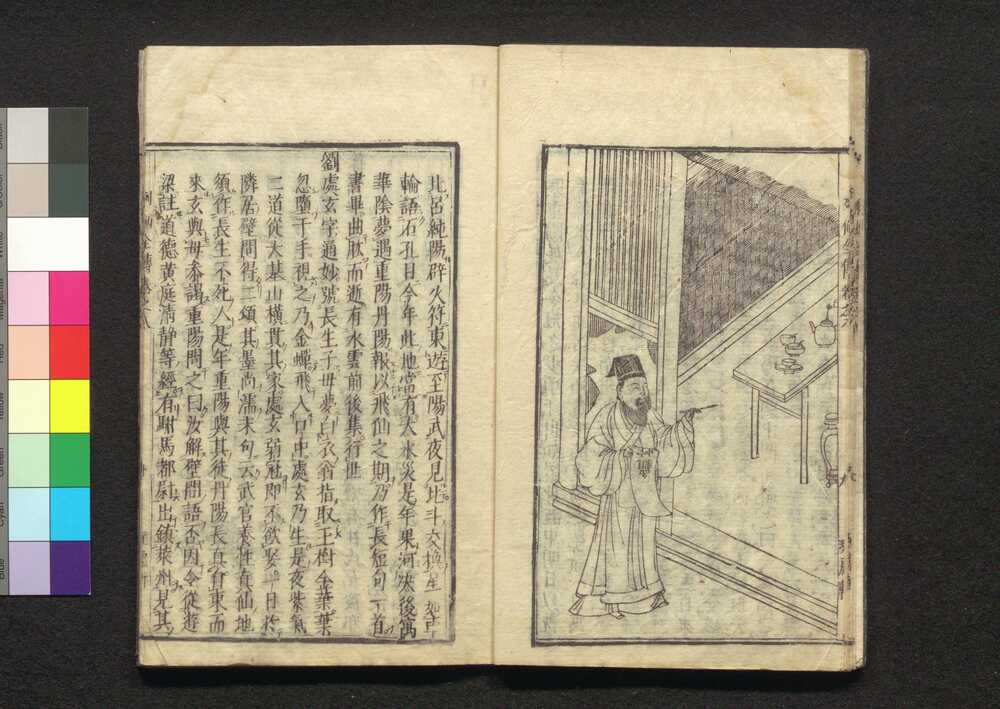 北呂純陽辟火符東遊至陽武夜見北斗大橫星如
輪語石孔目今年此地當有大水災是年果河決後寓
華陰夢遇重陽丹陽報以飛仙之期乃作長短句一首
書畢曲肱而逝有水雲前後集行世
劉處玄字通妙號長生子母夢白衣翁指取玉樹金葉葉
忽墮于手視之乃金蟬飛入口中處玄乃生是夜紫氣
二道從大基山橫貫其家處玄弱冠即不欲娶一日於
隣居壁間得二頌其墨尚濡末句云武官養性真仙地
須作長生不死人是年重陽與其徒丹陽長真自東而
來玄與母參謁重陽問之曰汝解壁間語否因令從遊
梁註道德黃庭清靜等經有駙馬都尉出鎮萊州見其